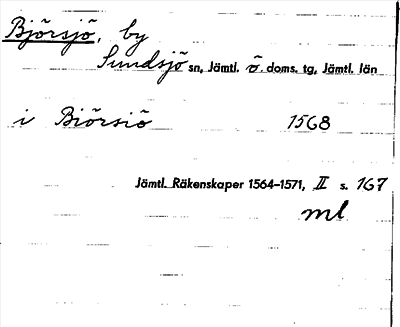 Björsjö, by
Sundsjö sn, Jämtl. ö. doms. tg, Jämtl. län
i Biörsiö 1568
Jämtl. Räkenskaper 1564–1571, II s. 167
ml